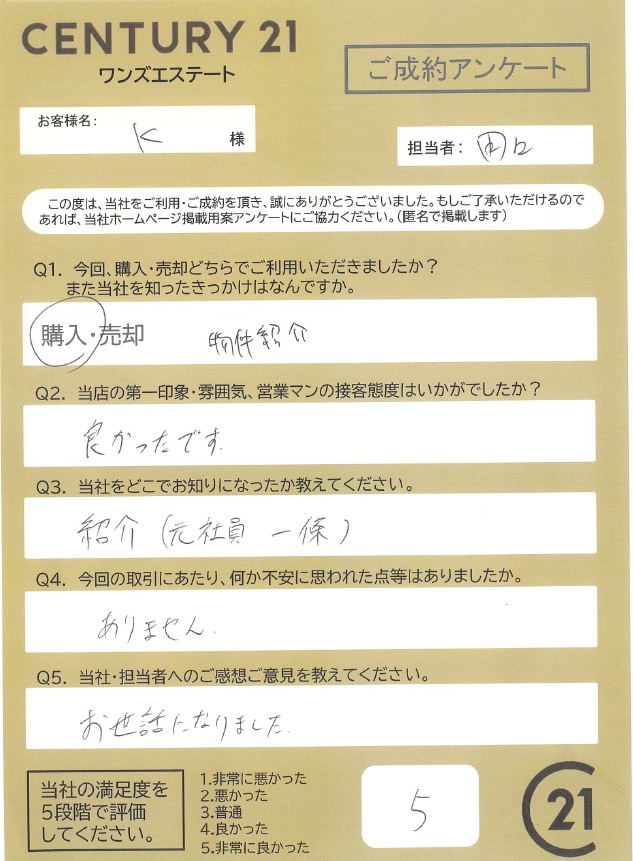 CENTURY 21
ワンズエステート
ご成約アンケート
お客様名:
K 様
担当者:
この度は、当社をご利用・ご成約を頂き、誠にありがとうございました。もしご了承いただけるので
あれば、当社ホームページ掲載用案アンケートにご協力ください。(匿名で掲載します)
Q1. 今回、購入・売却どちらでご利用いただきましたか?
また当社を知ったきっかけはなんですか。
購入・売却 物件紹介
Q2. 当店の第一印象・雰囲気、営業マンの接客態度はいかがでしたか?
良かったです.
Q3. 当社をどこでお知りになったか教えてください。
紹介(元社員 一條)
Q4. 今回の取引にあたり、何か不安に思われた点等はありましたか。
ありません.
Q5. 当社・担当者へのご感想ご意見を教えてください。
お世話になりました.
当社の満足度を
5段階で評価
してください。
1.非常に悪かった
2.悪かった
3.普通
4.良かった
5.非常に良かった
5
C21